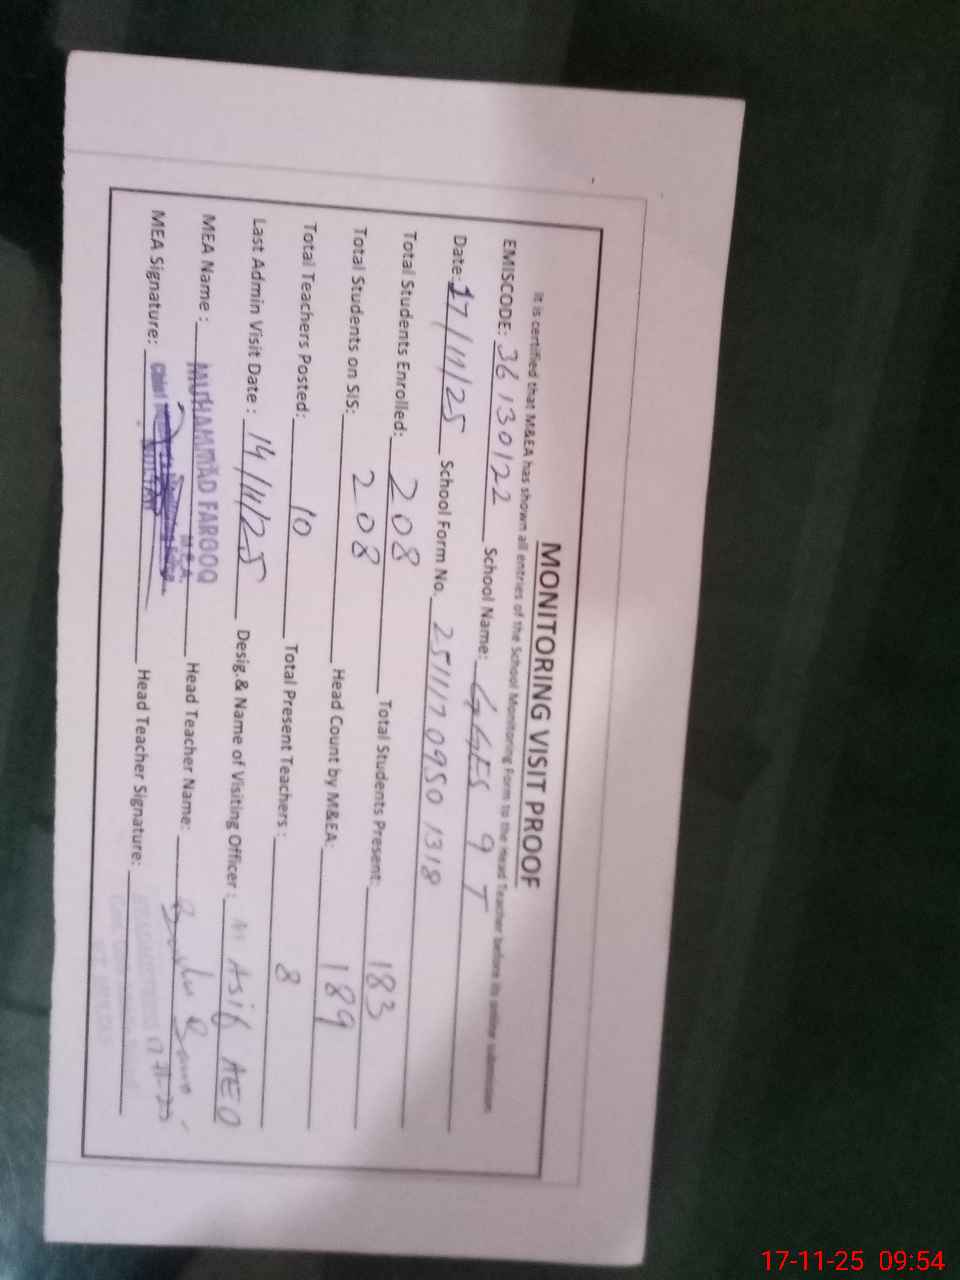 MONITORING VISIT PROOF
It is certified that M&EA has shown all entries of the School Monitoring Form to the Head Teacher before its online submission
EMISCODE: 36130122 School Name: GGES 9 T
Date: 17/11/25 School Form No. 25111709501318
Total Students Enrolled: 208 Total Students Present: 183
Total Students on SIS: 208 Head Count by M&EA: 189
Total Teachers Posted: 10 Total Present Teachers : 8
Last Admin Visit Date : 14/11/25 Desig.& Name of Visiting Officer : Asif AEO
MEA Name : MUHAMMAD FAROOQ Head Teacher Name:
M.E.A.
MEA Signature: Head Teacher Signature:
17-11-25 09:54